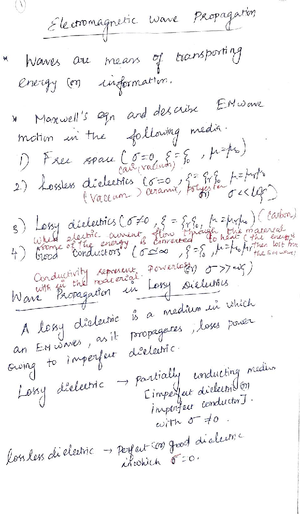 ①
Electromagnetic Wave Propagation
* Waves are means of transporting
energy (or) information.
* Maxwell's eqn and describe EM wave
motion in the following media.
1) Free space (σ=0, ξ=ξ₀, μ=μ₀)
(air, vacuum)
2) Lossless dielectrics (σ=0, ξ=ξᵣξ₀, μ=μᵣμ₀)
(vacuum) ceramic, polyester (or) σ<<ωξ)
3) Lossy dielectrics (σ≠0, ξ=ξᵣξ₀, μ=μᵣμ₀) (carbon)
When electric current flow through the material
some of the energy is converted to heat (the energy
then lost from the EM wave)
4) Good conductors (σ≃∞, ξ=ξ₀, μ=μᵣμ₀
(or) σ>>ωξ)
Conductivity represent, power loss
with in the material.
Wave Propagation in Lossy Dielectrics
A lossy dielectric is a medium in which
an EM waves, as it propagates, loses power
owing to imperfect dielectric.
Lossy dielectric → partially conducting medium
[imperfect dielectric (or)
imperfect conductor].
with σ ≠ 0.
lossless dielectric → perfect (or) good dielectric
in which σ=0.